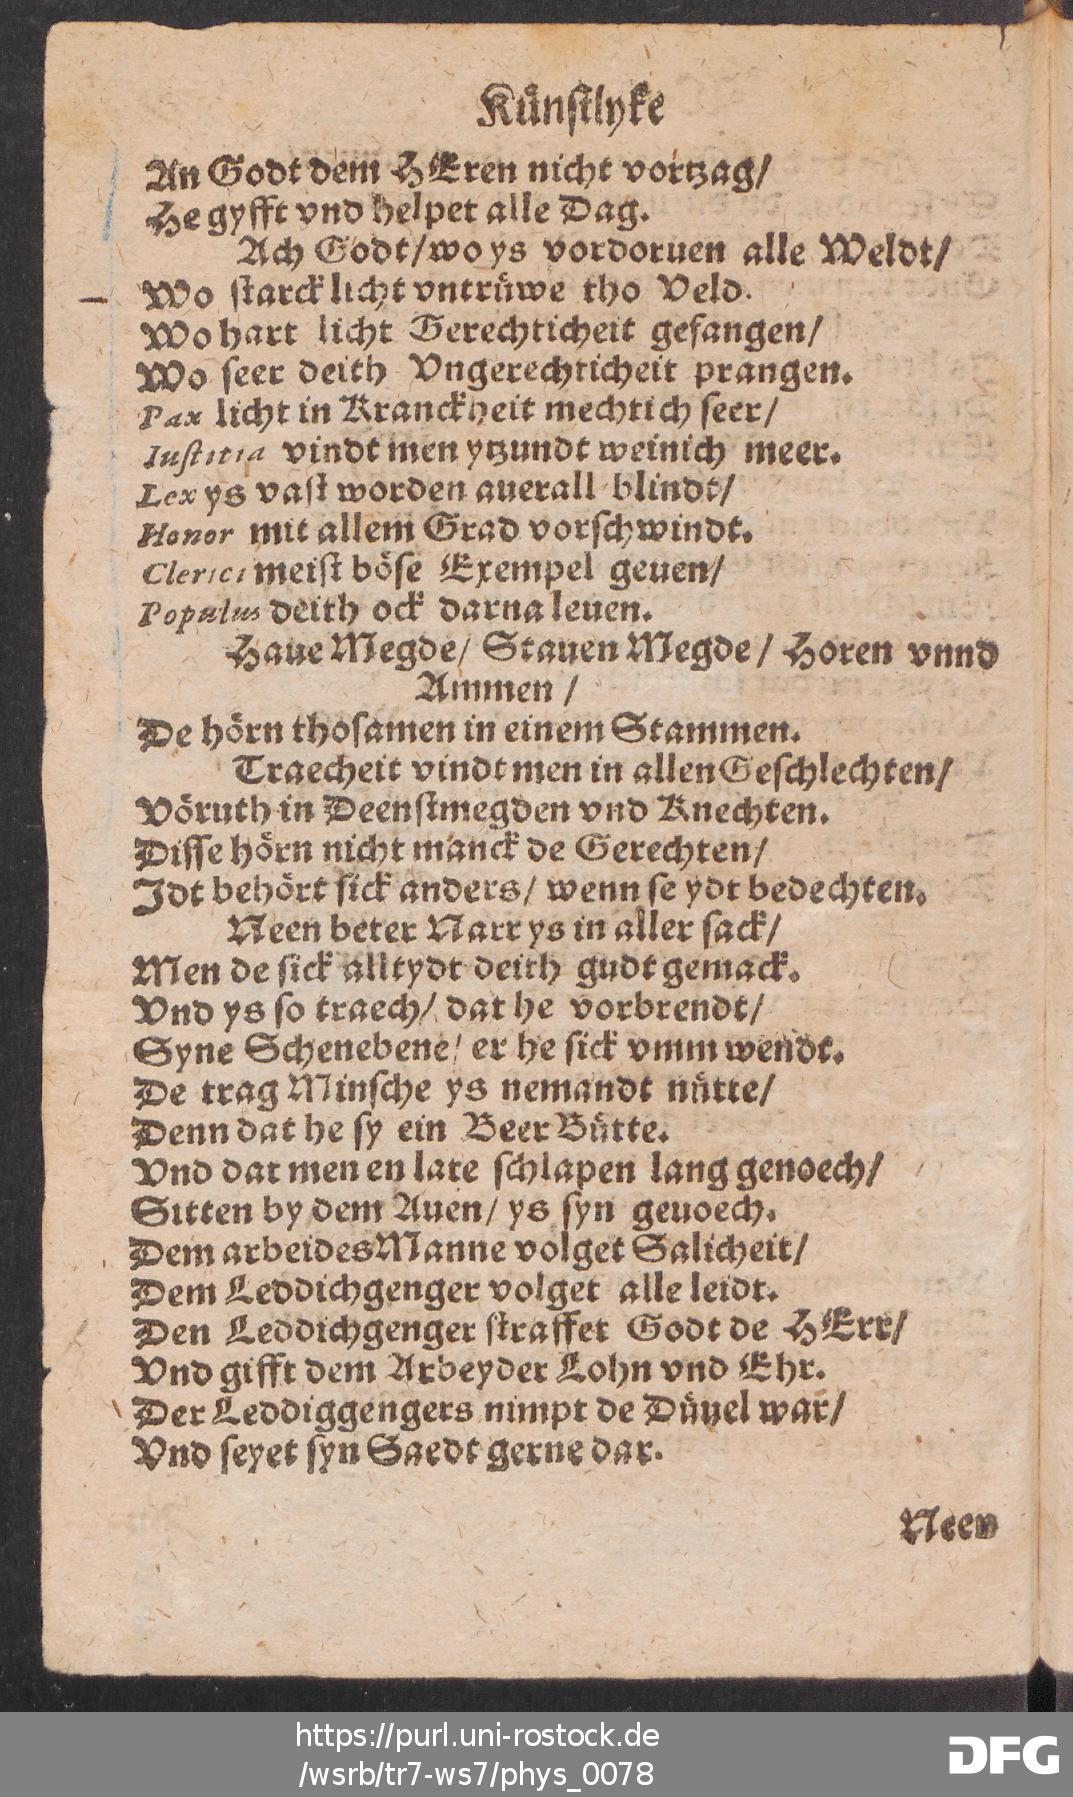 Kuͤnſtlyke
An Godt dem HEren nicht vortzag/
He gyfft vnd helpet alle Dag.
Ach Godt/ wo ys vordoruen alle Weldt/
Wo ſtarck licht vntruͤwe tho Veld.
Wo hart licht Gerechticheit gefangen/
Wo ſeer deith Vngerechticheit prangen.
Pax licht in Kranckheit mechtich ſeer/
Iuſtitia vindt men ytzundt weinich meer.
Lex ys vaſt worden auerall blindt/
Honor mit allem Grad vorſchwindt.
Clerici meiſt boͤſe Exempel geuen/
Populus deith ock darna leuen.
Haue Megde/ Stauen Megde/ Horen vnnd
Ammen/
De hoͤrn thoſamen in einem Stammen.
Traecheit vindt men in allen Geſchlechten/
Voͤruth in Deenſtmegden vnd Knechten.
Diſſe hoͤrn nicht manck de Gerechten/
Idt behoͤrt ſick anders/ wenn ſe ydt bedechten.
Neen beter Narr ys in aller ſack/
Men de ſick alltydt deith gudt gemack.
Vnd ys ſo traech/ dat he vorbrendt/
Syne Schenebene/ er he ſick vmm wendt.
De trag Minſche ys nemandt nuͤtte/
Denn dat he ſy ein Beer Buͤtte.
Vnd dat men en late ſchlapen lang genoech/
Sitten by dem Auen/ ys ſyn geuoech.
Dem arbeides Manne volget Salicheit/
Dem Leddichgenger volget alle leidt.
Den Leddichgenger ſtraffet Godt de HErr/
Vnd gifft dem Arbeyder Lohn vnd Ehr.
Der Leddiggengers nimpt de Duͤuel war/
Vnd ſeyet ſyn Saedt gerne dar.
Neen
https://purl.uni-rostock.de
/wsrb/tr7-ws7/phys_0078
DFG